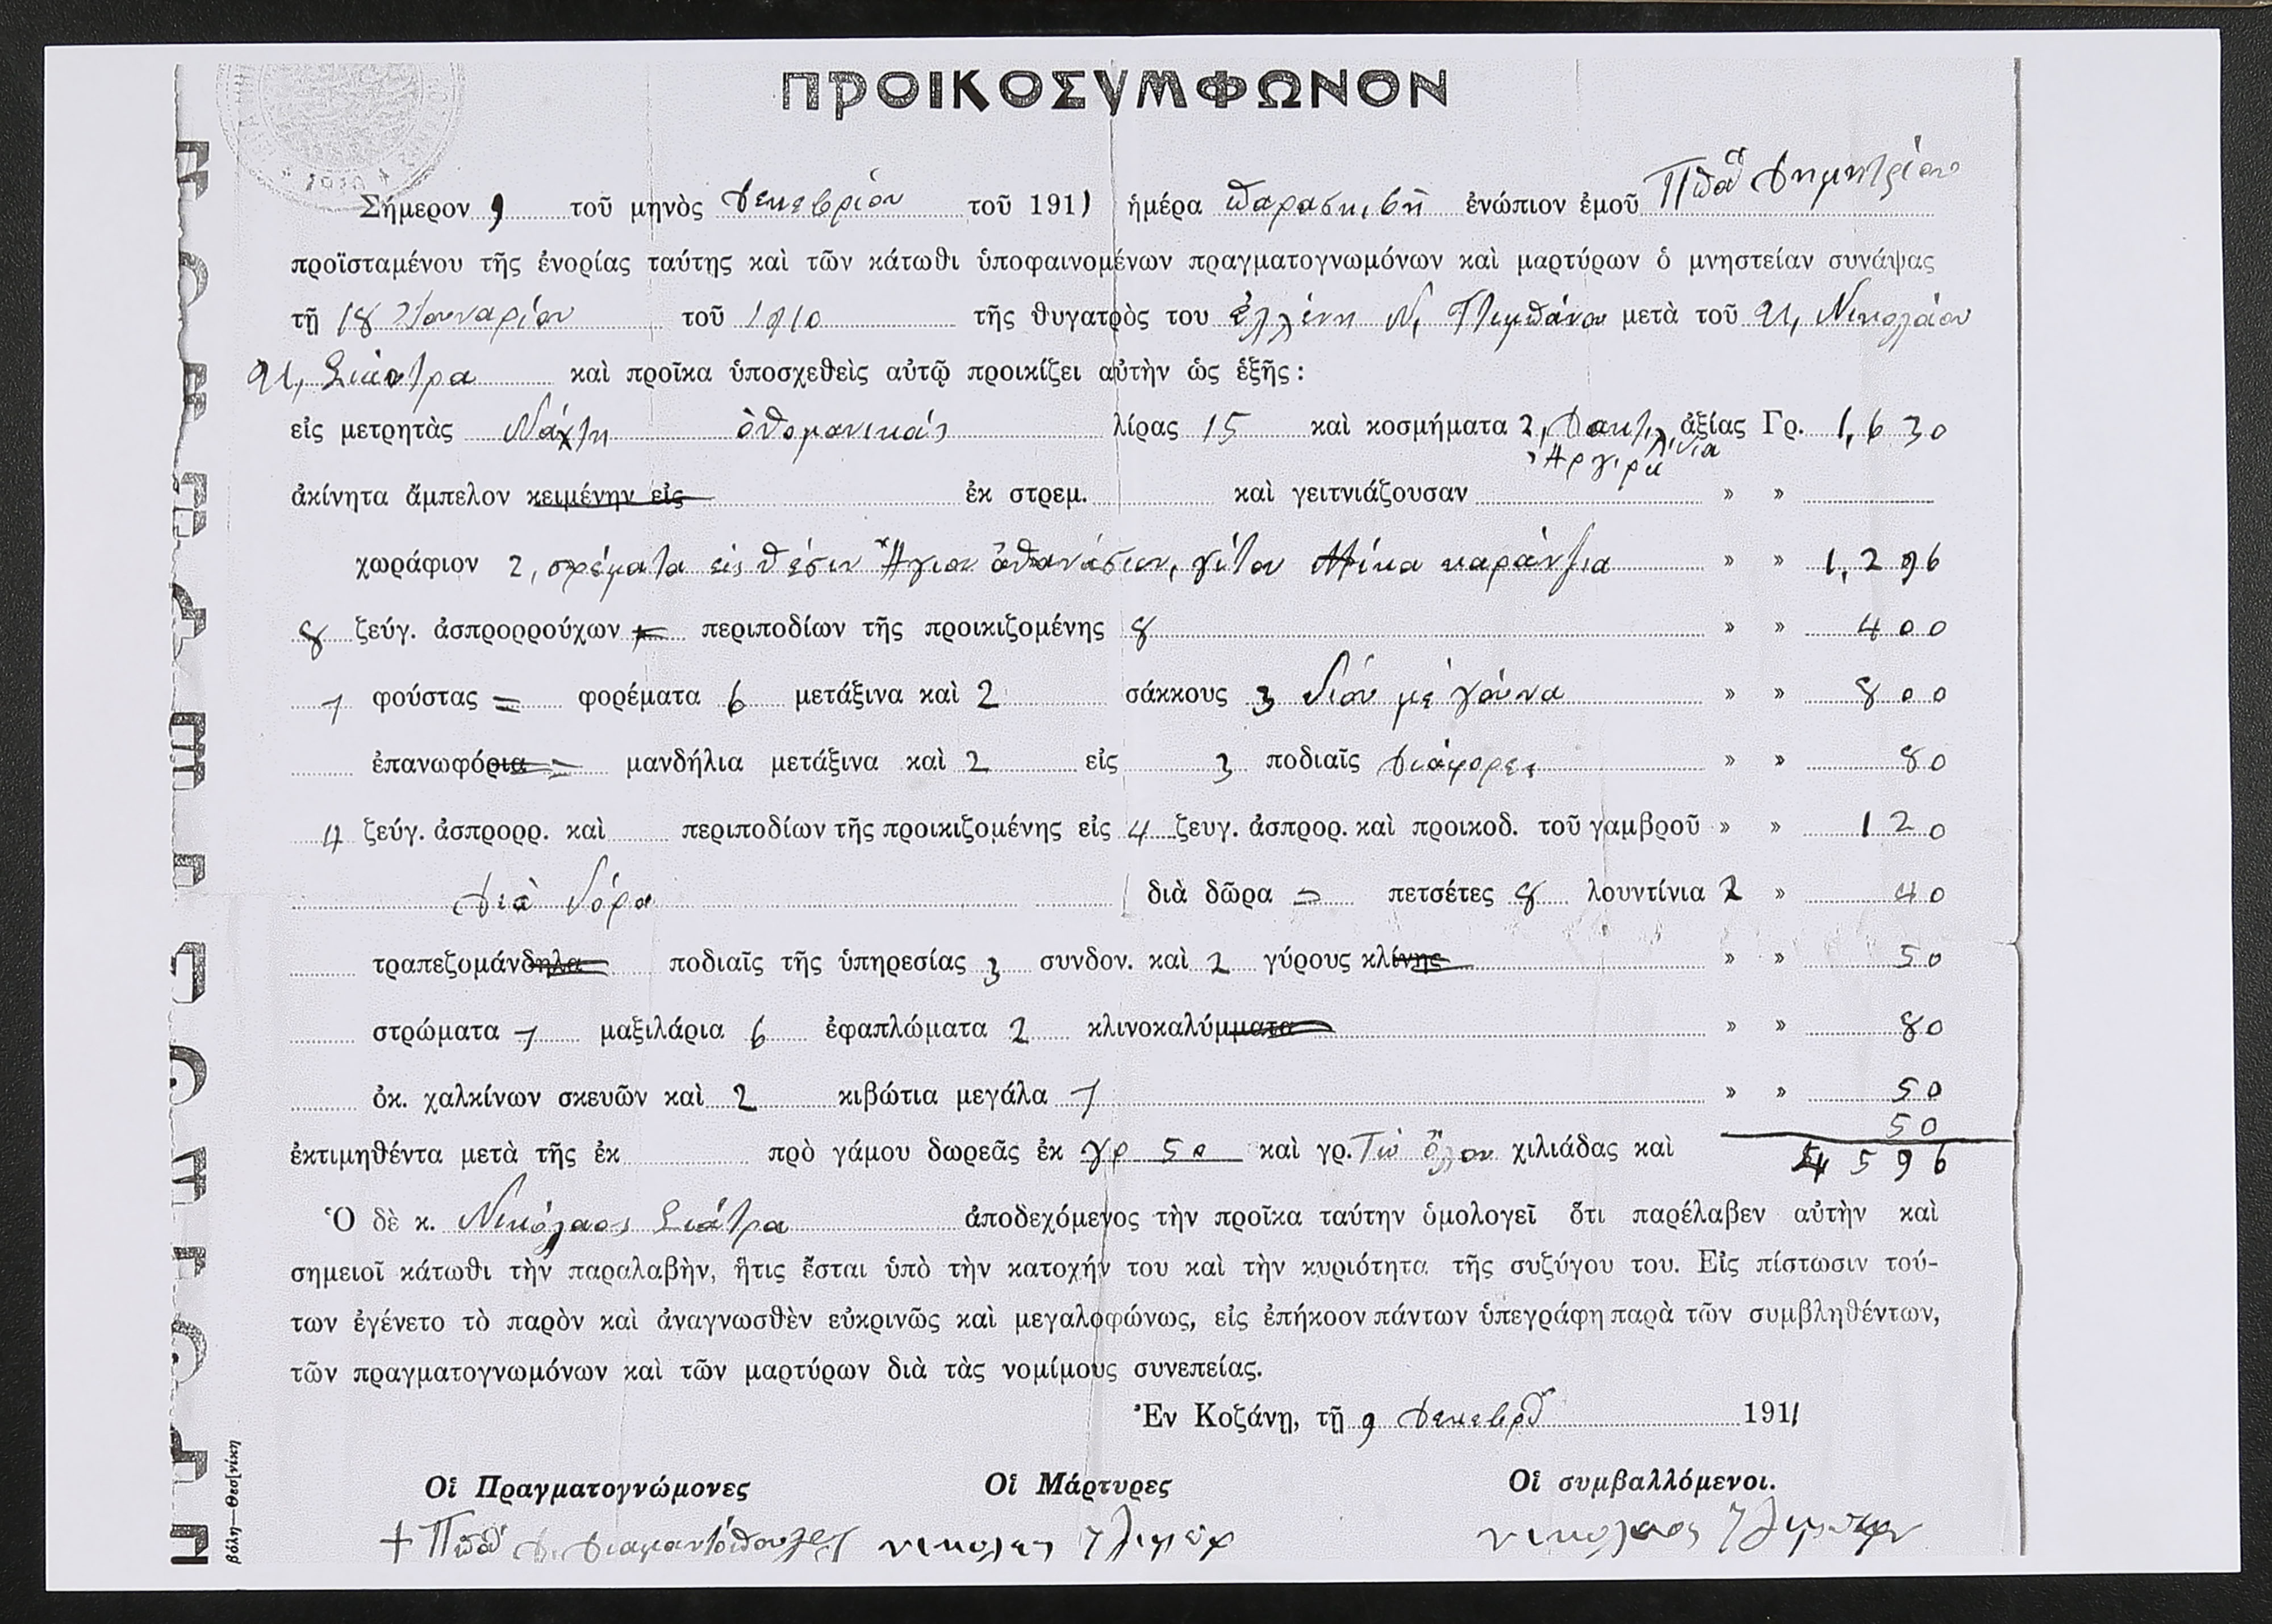 ΠΡΟΙΚΟΣΥΜΦΩΝΟΝ
Σήμερον 9 τοῦ μηνὸς Δεκεβρίου τοῦ 1911 ἡμέρα παρασκιβῆ ἐνώπιον ἐμοῦ Ππᾶ Δημητρίου
προϊσταμένου τῆς ἐνορίας ταύτης καὶ τῶν κάτωθι ὑποφαινομένων πραγματογνωμόνων καὶ μαρτύρων ὁ μνηστείαν συνάψας
τῇ 18 Ἰουναρίου τοῦ 1910 τῆς θυγατρὸς του Ἑλλένη Ν, μετὰ τοῦ Νικολάου
Σιάτρα καὶ προῖκα ὑποσχεθεὶς αὐτῷ προικίζει αὐτὴν ὡς ἑξῆς :
εἰς μετρητὰς Νάχτη ὀθομανικάς λίρας 15 καὶ κοσμήματα 2, Δακτιλίνια Ἀργιρα ἀξίας Γρ. 1,630
ἀκίνητα ἄμπελον κειμένην εἰς ἐκ στρεμ. καὶ γειτνιάζουσαν » »
χωράφιον 2, στρέματα εἰς θέσιν Ἅγιον ἀθανάσιον, γίτον Μίκα καράντζια » » 1,296
8 ζεύγ. ἀσπρορρούχων περιποδίων τῆς προικιζομένης 8 » » 400
1 φούστας = φορέματα 6 μετάξινα καὶ 2 σάκκους 3 δίου με γούνα » » 800
ἐπανωφόρια = μανδήλια μετάξινα καὶ 2 εἰς 3 ποδιαῖς διάφορες » » 80
4 ζεύγ. ἀσπρορρ. καὶ περιποδίων τῆς προικιζομένης εἰς 4 ζευγ. ἀσπρορ. καὶ προικοδ. τοῦ γαμβροῦ » » 120
Διὰ δόρα διὰ δῶρα = πετσέτες 8 λουντίνια 2 » 40
τραπεζομάνδηλα ποδιαῖς τῆς ὑπηρεσίας 3 συνδον. καὶ 2 γύρους κλίνης » » 50
στρώματα 1 μαξιλάρια 6 ἐφαπλώματα 2 κλινοκαλύμματα » » 80
ὀκ. χαλκίνων σκευῶν καὶ 2 κιβώτια μεγάλα 1 » » 50
50
ἐκτιμηθέντα μετὰ τῆς ἐκ πρὸ γάμου δωρεᾶς ἐκ γρ 50 καὶ γρ. Τὼ ὅλον χιλιάδας καὶ 4596
Ὁ δὲ κ. Νικόλαος Σιάτρα ἀποδεχόμενος τὴν προῖκα ταύτην ὁμολογεῖ ὅτι παρέλαβεν αὐτὴν καὶ
σημειοῖ κάτωθι τὴν παραλαβὴν, ἥτις ἔσται ὑπὸ τὴν κατοχήν του καὶ τὴν κυριότητα τῆς συζύγου του. Εἰς πίστωσιν τού-
των ἐγένετο τὸ παρὸν καὶ ἀναγνωσθὲν εὐκρινῶς καὶ μεγαλοφώνως, εἰς ἐπήκοον πάντων ὑπεγράφη παρὰ τῶν συμβληθέντων,
τῶν πραγματογνωμόνων καὶ τῶν μαρτύρων διὰ τὰς νομίμους συνεπείας.
Ἐν Κοζάνῃ, τῇ 9 Δεκεβρ 1911
Οἱ Πραγματογνώμονες Οἱ Μάρτυρες Οἱ συμβαλλόμενοι.
+ Ππᾶ Δ. Διαμαντόπουλος νικολαος
βόλη—Θεσ]νίκη